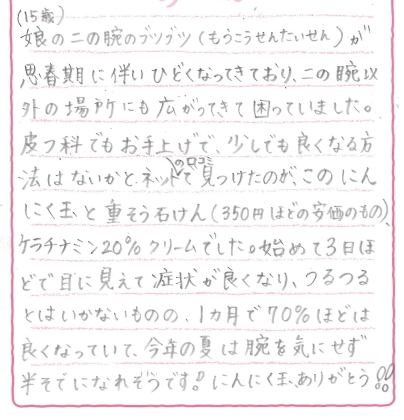 (15歳)
娘の二の腕のブツブツ(もうこうせんたいせん)が
思春期に伴いひどくなってきており、二の腕以
外の場所にも広がってきて困っていました。
皮フ科でもお手上げで、少しでも良くなる方
の口コミ
法はないかとネットで見つけたのが、このにん
にく玉と重そう石けん(350円ほどの安価のもの)、
ケラチナミン20%クリームでした。始めて3日ほ
どで目に見えて症状が良くなり、つるつる
とはいかないものの、1カ月で70%ほどは
良くなっていて、今年の夏は腕を気にせず
半そでになれそうです!!にんにく玉、ありがとう!!